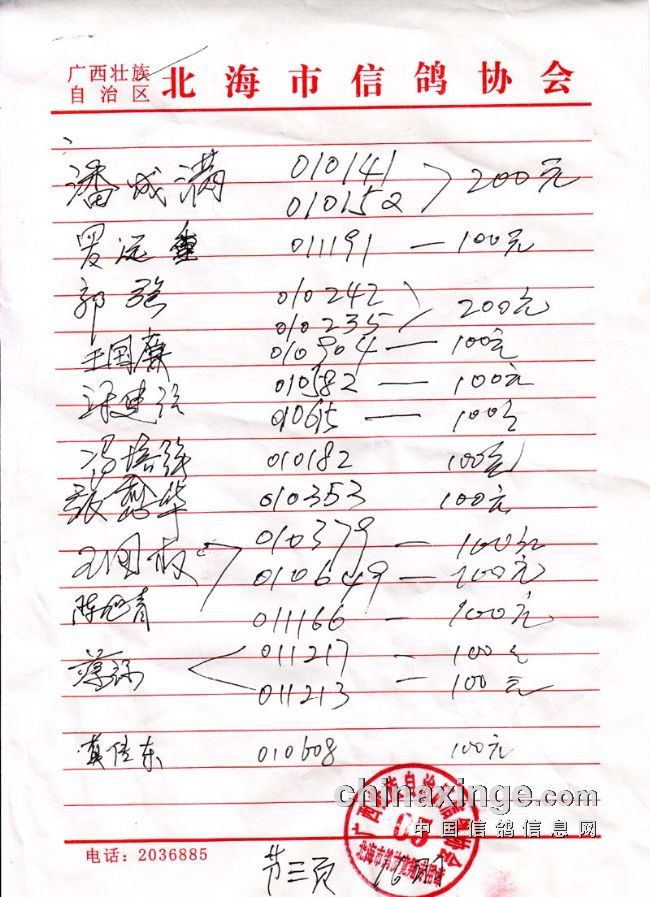 广西壮族
自治区 北海市信鸽协会
潘成满 010141
010152 200元
罗远 011191 — 100元
郭强 010242
010235 200元
王国 010904 — 100元
010582 — 100元
010615 — 100元
冯培强 010182 100元
张 华 010353 100元
010379 — 100元
010649 — 100元
陈旭青 011166 — 100元
011217 — 100元
011213 — 100元
010608 100元
chinaxinge.com
中国信鸽信息网
05
电话：2036885
节三页